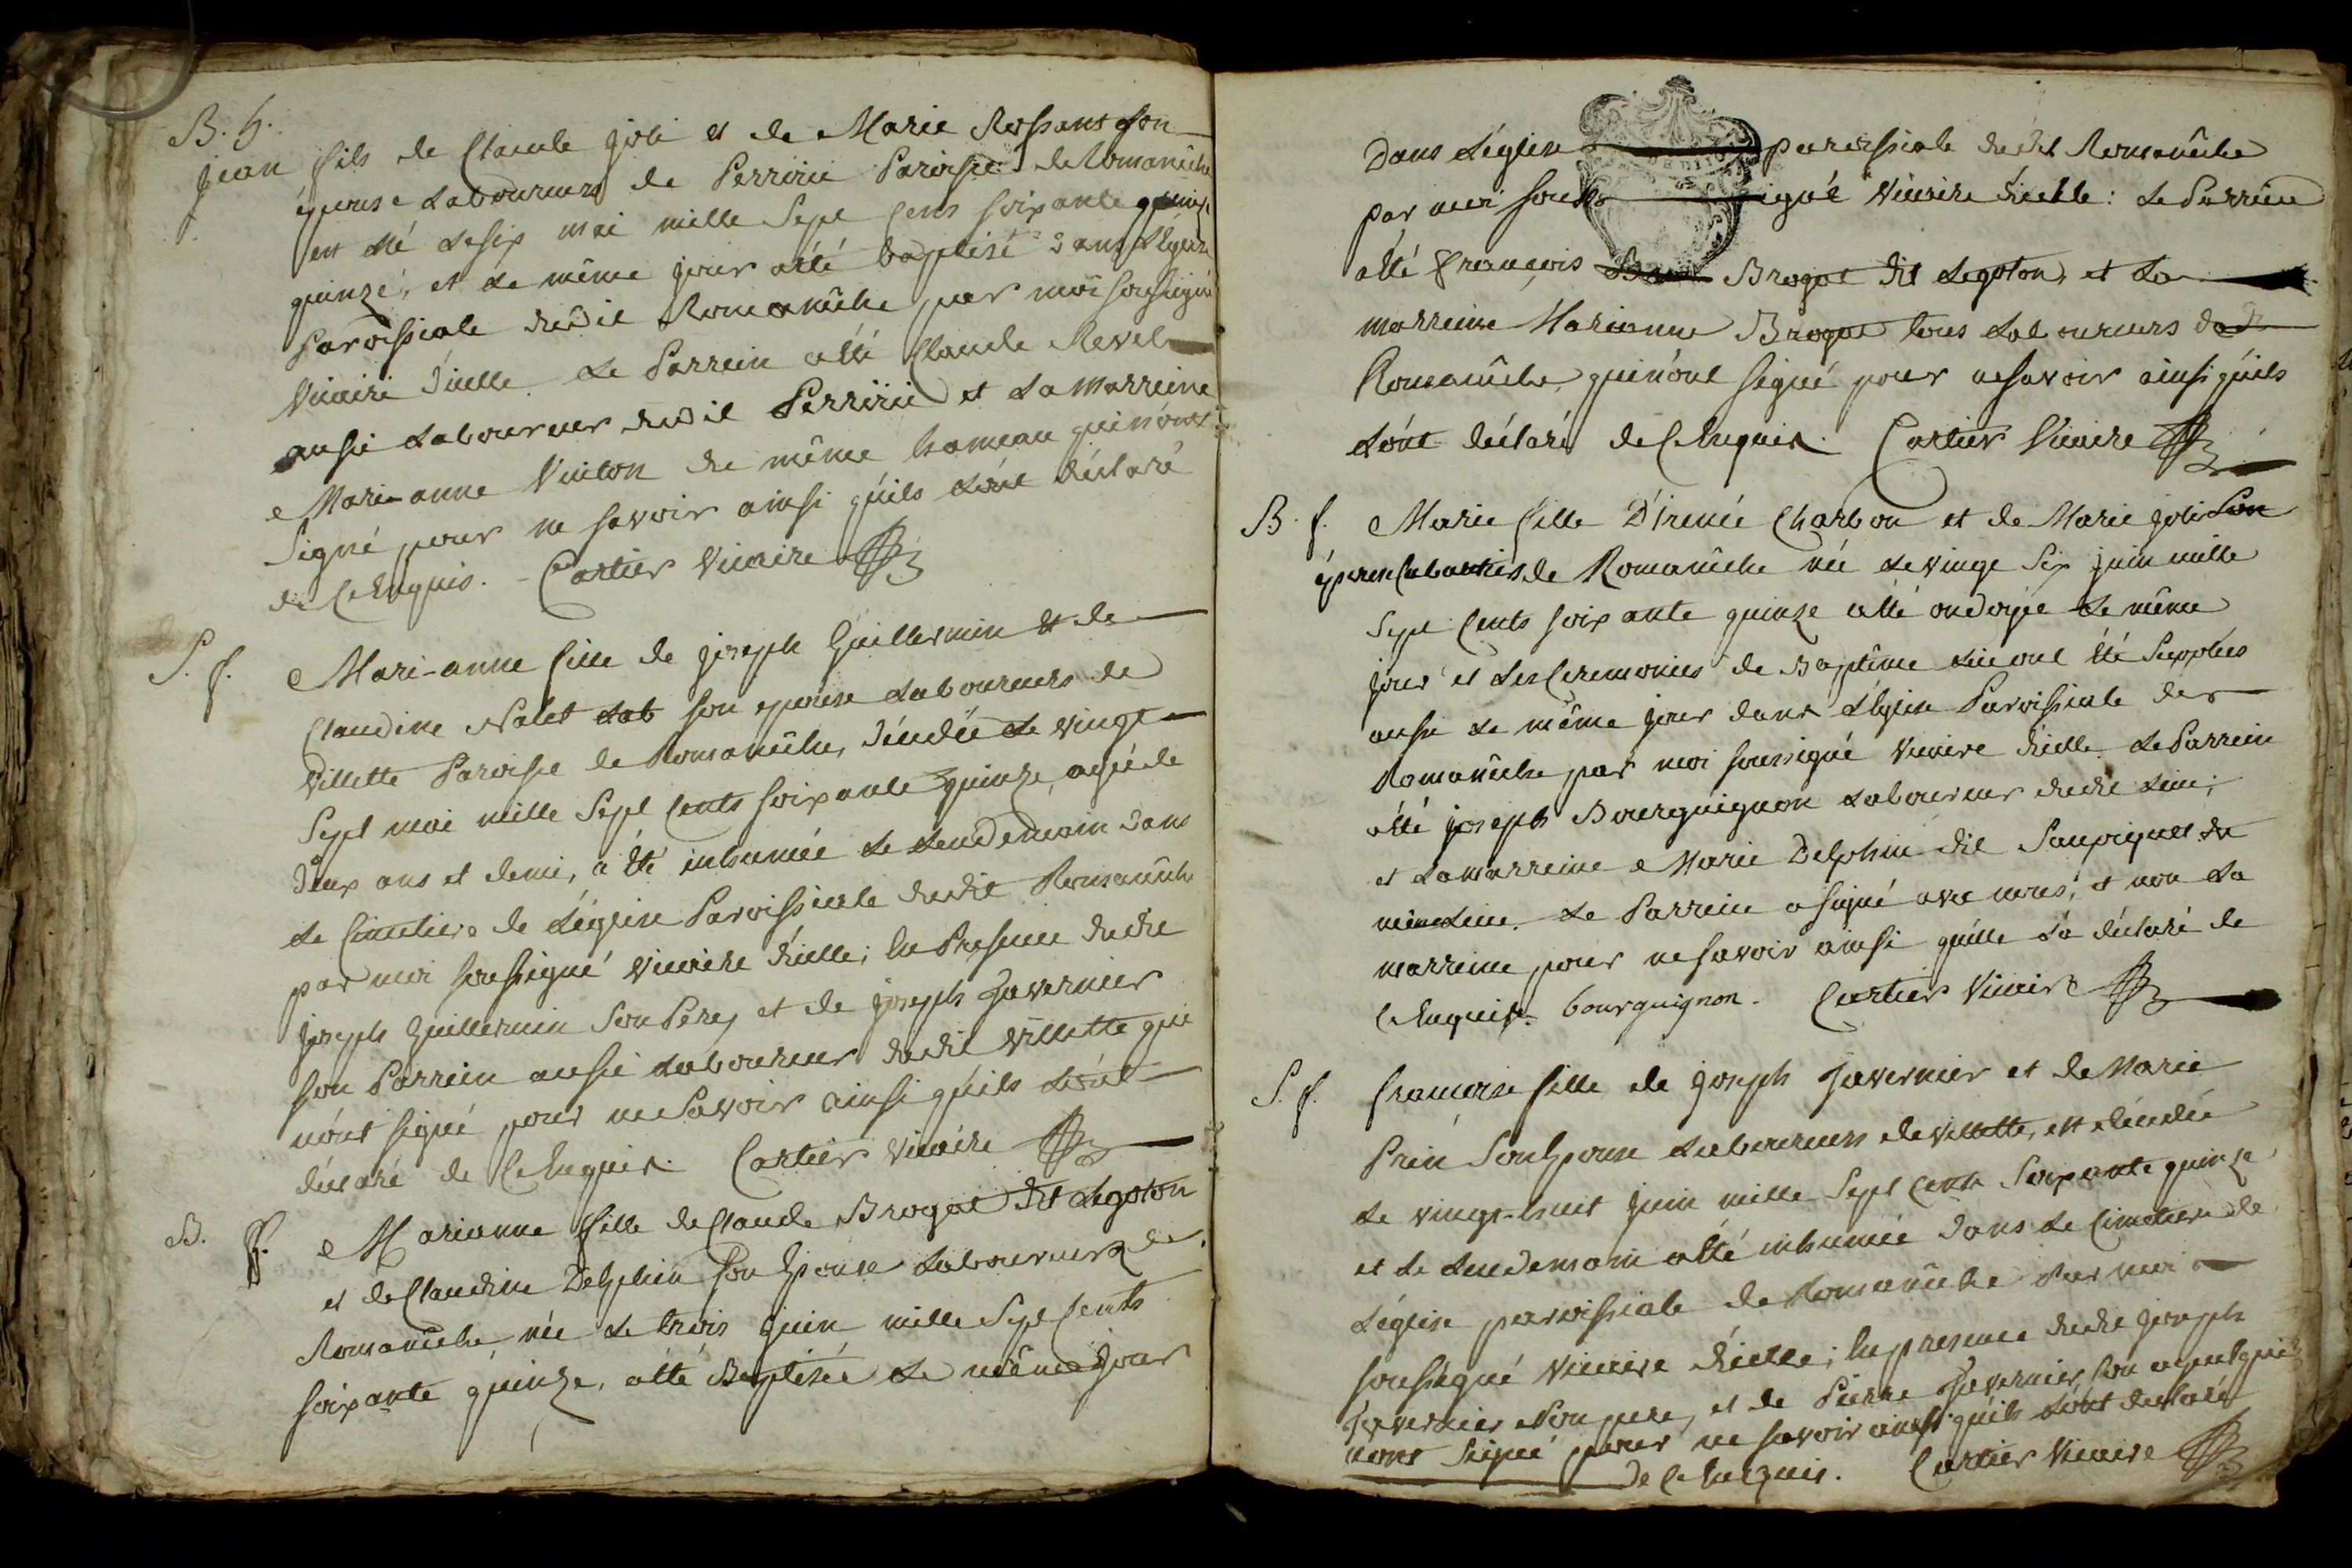 B. h.
jean fils de Claude joli et de Marie Rossant son
épouse Laboureurs de Perririe Paroisse de Romanêche
est né le six mai mille Sept Cens soixante
quinze, et le même jour a été baptisé dans l'Eglise
Paroissiale dudit Romanêche, par moi soussigné
Vicaire d'icelle Le Parrein a été Claude Revel
aussi Laboureur dudit Perririe et La Marreine
Mari-anne Vuiton du même hameau qui n'ont
Signé pour ne savoir ainsi qu'ils L'ont déclaré
de Ce Enquis. - Cartier Vicaire
S. f. Mari-anne fille de joseph Guillermin et de
Claudine Nalet Lab son epouse Laboureurs de
Villette Paroisse de Romanêche, décédée Le vingt
Sept mai mille Sept Cents soixante quinze, agée de
deux ans et demi, a été inhumée Le Lendemain dans
Le Cimetiere de L'église Paroissiale dudit Romanêche
par moi soussigné vicaire d'icelle; En Presence dudit
joseph Guillermin Son Pere, et de joseph Javernier
son Parrein aussi Laboureur dudit Villette qui
n'ont signé pour ne Savoir ainsi qu'ils L'ont
déclaré de Ce Enquis. Cartier Vicaire
B. f. Marianne fille de Claude Brogat dit Legoton
et de Claudine Delphin son Epouse Laboureurs de
Romanêche, née Le trois juin mille Sept Cents
soixante quinze, a été Baptisée Le même jour
Dans L'église paroissiale dudit Romanêche
par moi sous signé Vicaire d'icelle: Le Parrein
a été François Brogat dit Legoton, et La
marreine Marianne Brogat tous Laboureurs dud
Romanêche, qui n'ont signé pour ne savoir ainsi qu'ils
L'ont déclaré de Ce Enquis. Cartier Vicaire
B. f. Marie fille D'irenée Charbon et de Marie joli Son
épouse Cabartiers de Romanêche née Le vingt Six juin mille
Sept Cents soixante quinze a été ondoyée Le même
jour et Les Ceremonies de Baptême Lui ont été Supplées
aussi Le même jour dans L'Eglise Paroissiale de
Romanêche par moi soussigné Vicaire d'icelle Le Parrein
a été joseph Bourguignon Laboureur dudit Lieu;
et La marreine Marie Delphin dit Saupiquet du
même Lieu. Le Parrein a signé avec nous, et non La
marreine pour ne savoir ainsi qu'elle L'a déclaré de
Ce Enquise. bourguignon. Cartier Vicaire
S. f. francoise fille de joseph Javernier et de Marie
Prin Son Epouse Laboureurs de Villette, est décédée
Le vingt-huit juin mille Sept Cents Soixante quinze
et Le Lendemain a été inhumée Dans Le Cimetiere de
L'église paroissiale de Romanêche Par moi
soussigné Vicaire d'icelle; En presence dudit joseph
Javernier Son pere, et de Pierre Javernier, son ayeul qui
n'ont Signé pour ne savoir ainsi qu'ils L'ont declaré
De Ce Enquis. Cartier Vicaire